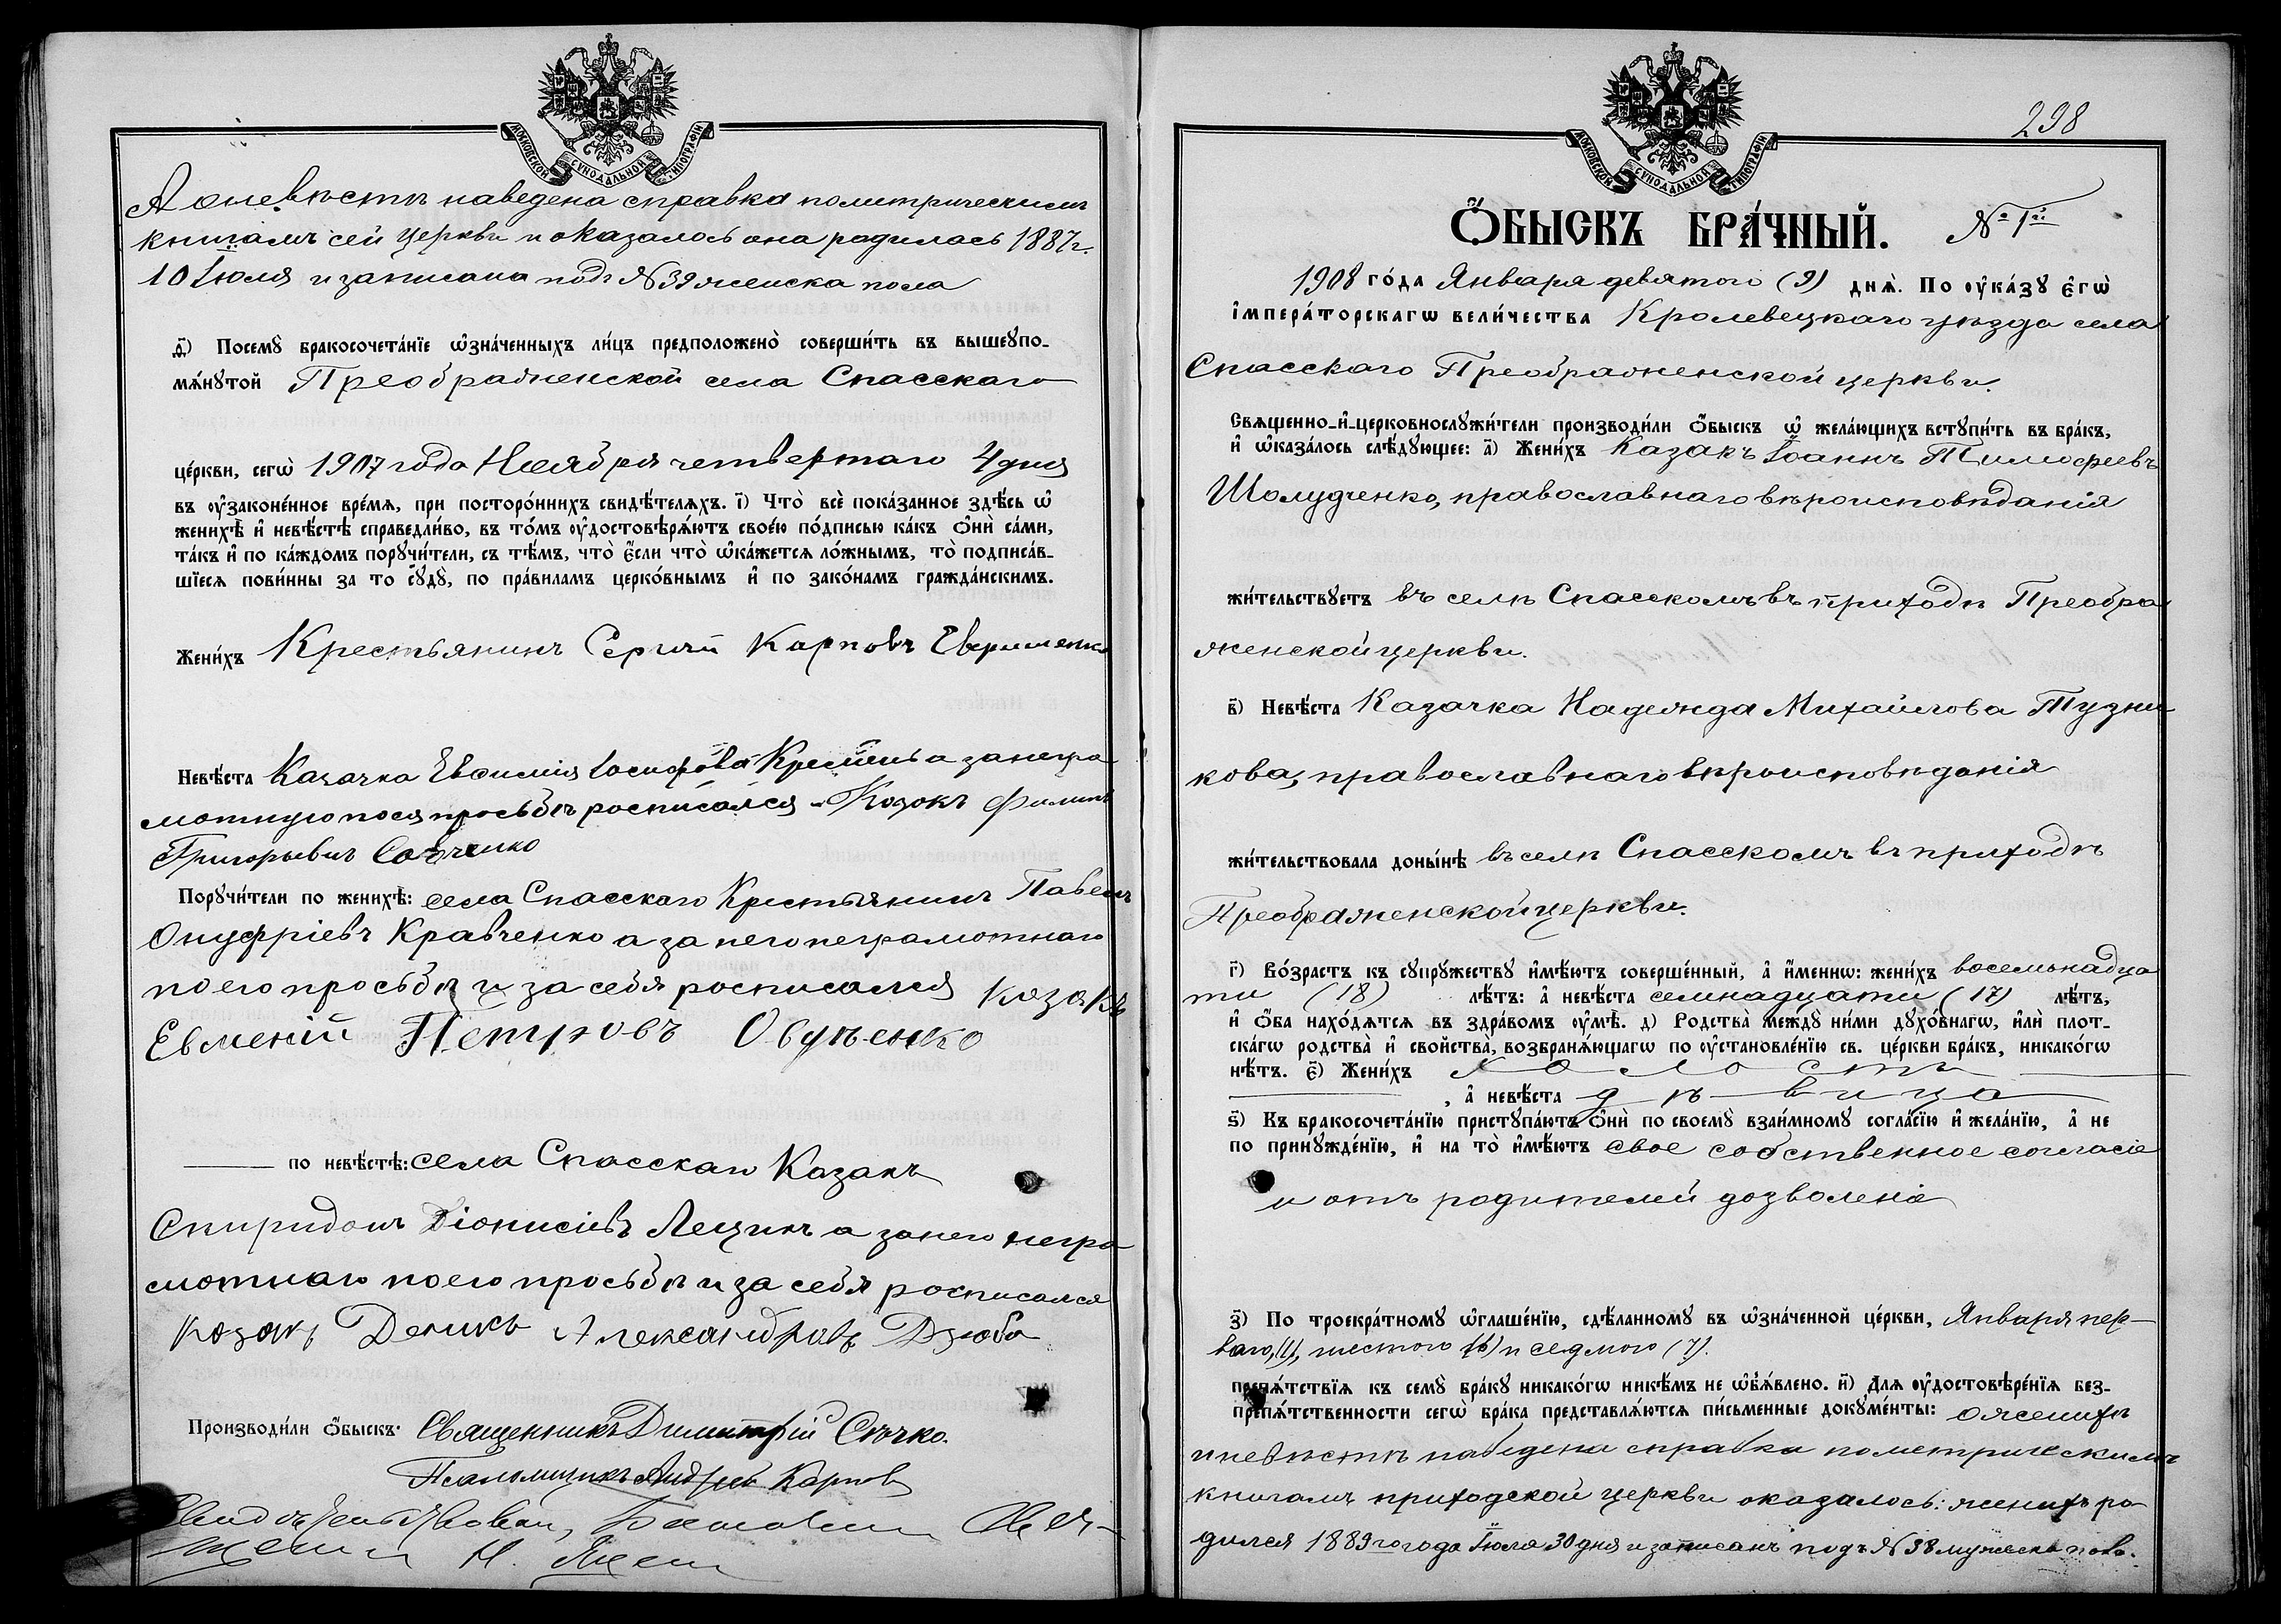 МОСКОВСКОЙ СѴНОДАЛЬНОЙ ТИПОГРАФІИ
А о невѣстѣ наведена справка по метрическимъ
книгамъ сей церкви и оказалось она родилась 1887 г.
10 Іюля и записана подъ № 39 женска пола
ѳ҃) Посемꙋ̀ бракосочета́нїе ѡ҆зна́ченныхъ ли́цъ предположено̀ соверши́ть въ вышеꙋпо-
мѧ́нꙋтой Преображенской села Спасскаго
це́ркви, сегѡ̀ 1907 года Ноября четвертаго 4 дня
въ ᲂу҆законе́нное вре́мѧ, при посторо́ннихъ свидѣ́телѧхъ. і҃) Что̀ всѐ пока́занное здѣ́сь ѡ҆
женихѣ̀ и҆ невѣ́стѣ справедли́во, въ то́мъ ᲂу҆достовѣрѧ́ютъ свое́ю по́дписью ка́къ ѻ҆нѝ са́ми,
та́къ и҆ по ка́ждомъ порꙋчи́тели, съ тѣ́мъ, что̀ є҆́сли что̀ ѡ҆ка́жетсѧ ло́жнымъ, то̀ подписа́в-
шїесѧ пови́нны за то сꙋдꙋ̀, по пра́виламъ церко́внымъ и҆ по зако́намъ гражда́нскимъ.
Жени́хъ Крестьянинъ Сергій Карповъ Евфименко
Невѣ́ста Казачка Евфимія Іосифова а за негра
мотную по ея просьбѣ росписался Козакъ Филипъ
Григорьевъ Савченко
Порꙋчи́тели по женихѣ̀: села Спасскаго Крестьянинъ Павелъ
Онуфріевъ Кравченко а за него неграмотнаго
по его просьбѣ и за себя росписался Козакъ
Евменій Петровъ Овдѣенко
по невѣ́стѣ: села Спасскаго Казакъ
Спиридонъ Діонисіевъ Лещинъ а за него негра
мотнаго по его просьбѣ и за себя росписался
козакъ Александровъ Дзюба
Производи́ли ѻ҆́быскъ: Священникъ Димитрій Сѣчко.
Псаломщикъ Андрей Карпов
298
МОСКОВСКОЙ СѴНОДАЛЬНОЙ ТИПОГРАФІИ
Ѻ҆́БЫСКЪ БРА́ЧНЫЙ. № 1й
1908 го́да Января девятого (9) днѧ̀. По ᲂу҆ка́зꙋ є҆гѡ̀
і҆мпера́торскагѡ вели́чества Кролевецкаго уѣзда села
Спасскаго Преображенской церкви.
Свѧщенно-и҆-церковнослꙋжи́тели производи́ли ѻ҆́быскъ ѡ҆ жела́ющихъ встꙋпи́ть въ бра́къ,
и҆ ѡ҆каза́лось слѣ́дꙋющее: а҃) Жени́хъ Казакъ Іоаннъ Тимофеевъ
Шолудченко, православнаго вѣроисповѣданія
жи́тельствꙋетъ въ селѣ Спасскомъ въ приходѣ Преобра
женской церкви.
в҃) Невѣ́ста Казачка Надежда Михайлова Тузни-
кова, православнаго вѣроисповѣданія
жи́тельствовала доны́нѣ въ селѣ Спасскомъ въ приходѣ
Преображенской церкви.
г҃) Во́зрастъ къ сꙋпрꙋ́жествꙋ и҆мѣ́ютъ соверше́нный, а҆ и҆́меннѡ: жени́хъ восемьнадца
ти (18) лѣ́тъ: а҆ невѣ́ста семнадцати (17) лѣ́тъ,
и҆ ѻ҆́ба нахо́дѧтсѧ въ здра́вомъ ᲂу҆мѣ̀. д҃) Родства̀ междꙋ̀ ни́ми дꙋхо́внагѡ, и҆лѝ плот-
ска́гѡ родства̀ и҆ сво́йства̀, возбранѧ́ющагѡ по ᲂу҆становле́нїю св. це́ркви бра́къ, никако́гѡ
нѣ́тъ. є҃) Жени́хъ холостъ
, а҆ невѣ́ста дѣвица
ѕ҃) Къ бракосочета́нїю пристꙋпа́ютъ ѻ҆нѝ по своемꙋ̀ взаи́мномꙋ согла́сїю и҆ жела́нїю, а҆ не
по принꙋжде́нїю, и҆ на то̀ и҆мѣ́ютъ свое собственное согласіе
и отъ родителей дозволеніе
з҃) По троекра́тномꙋ ѡ҆глаше́нїю, сдѣ́ланномꙋ въ ѡ҆зна́ченной це́ркви, Января пер-
ваго, (1), шестого (6) и седмого (7).
препѧ́тствїѧ къ семꙋ̀ бра́кꙋ никако́гѡ никѣ́мъ не ѡ҆б̾ѧ́влено. и҃) Длѧ ᲂу҆достовѣре́нїѧ без-
препѧ́тственности сегѡ̀ бра́ка представлѧ́ютсѧ пи́сьменные докꙋме́нты: о женихѣ
и невѣстѣ наведена справка по метрическимъ
книгамъ приходской церкви оказалось: женихъ ро-
дился 1889 го года Іюля 30 дня и записанъ подъ № 38 мужеска пола.